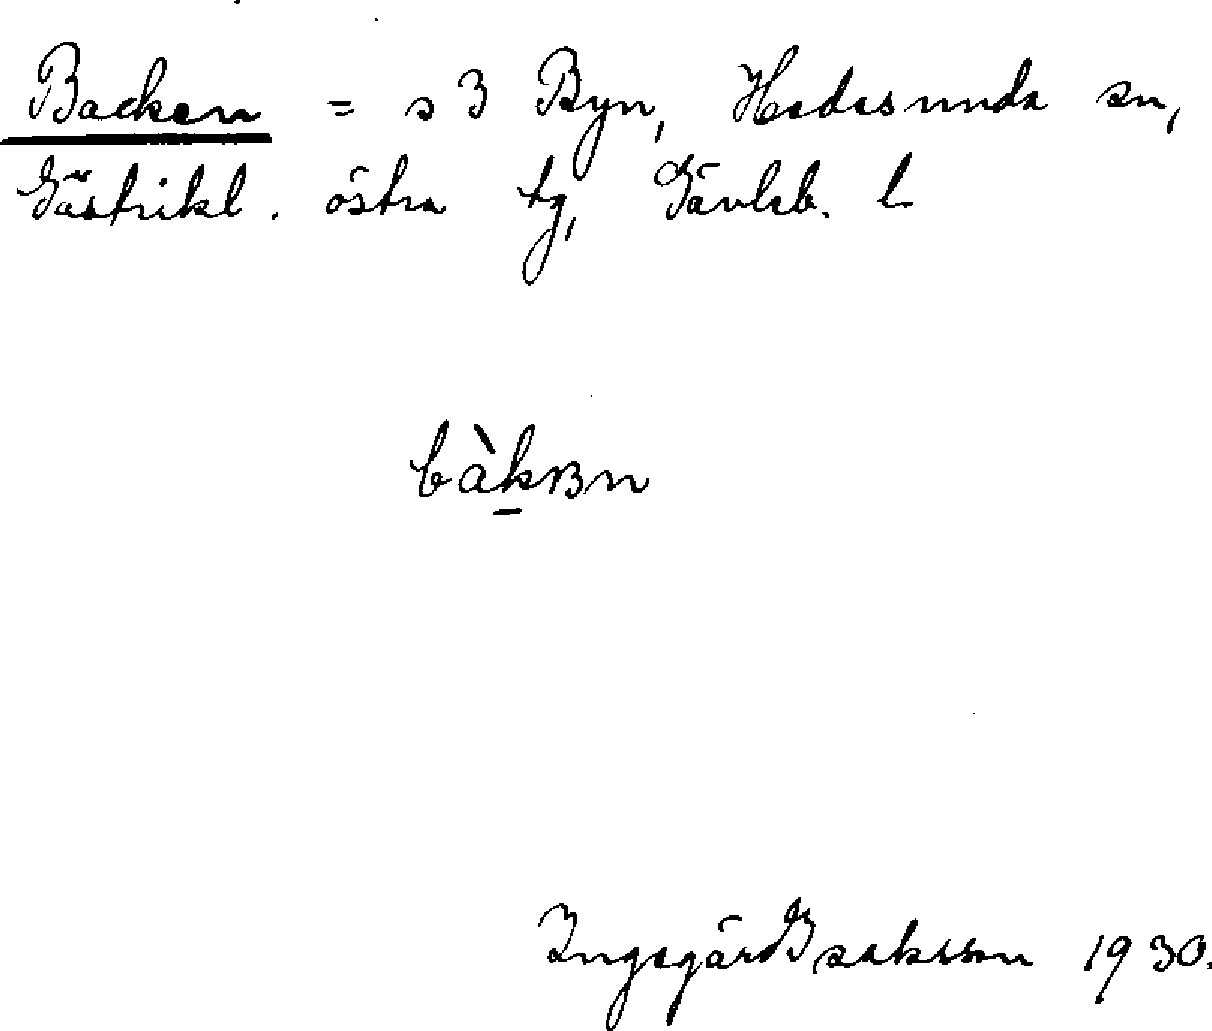 Backen = s 3 Byn, Hedesunda sn,
Gästrikl. östra tg, Gävleb. l
Ingegärd Isaksson 1930.